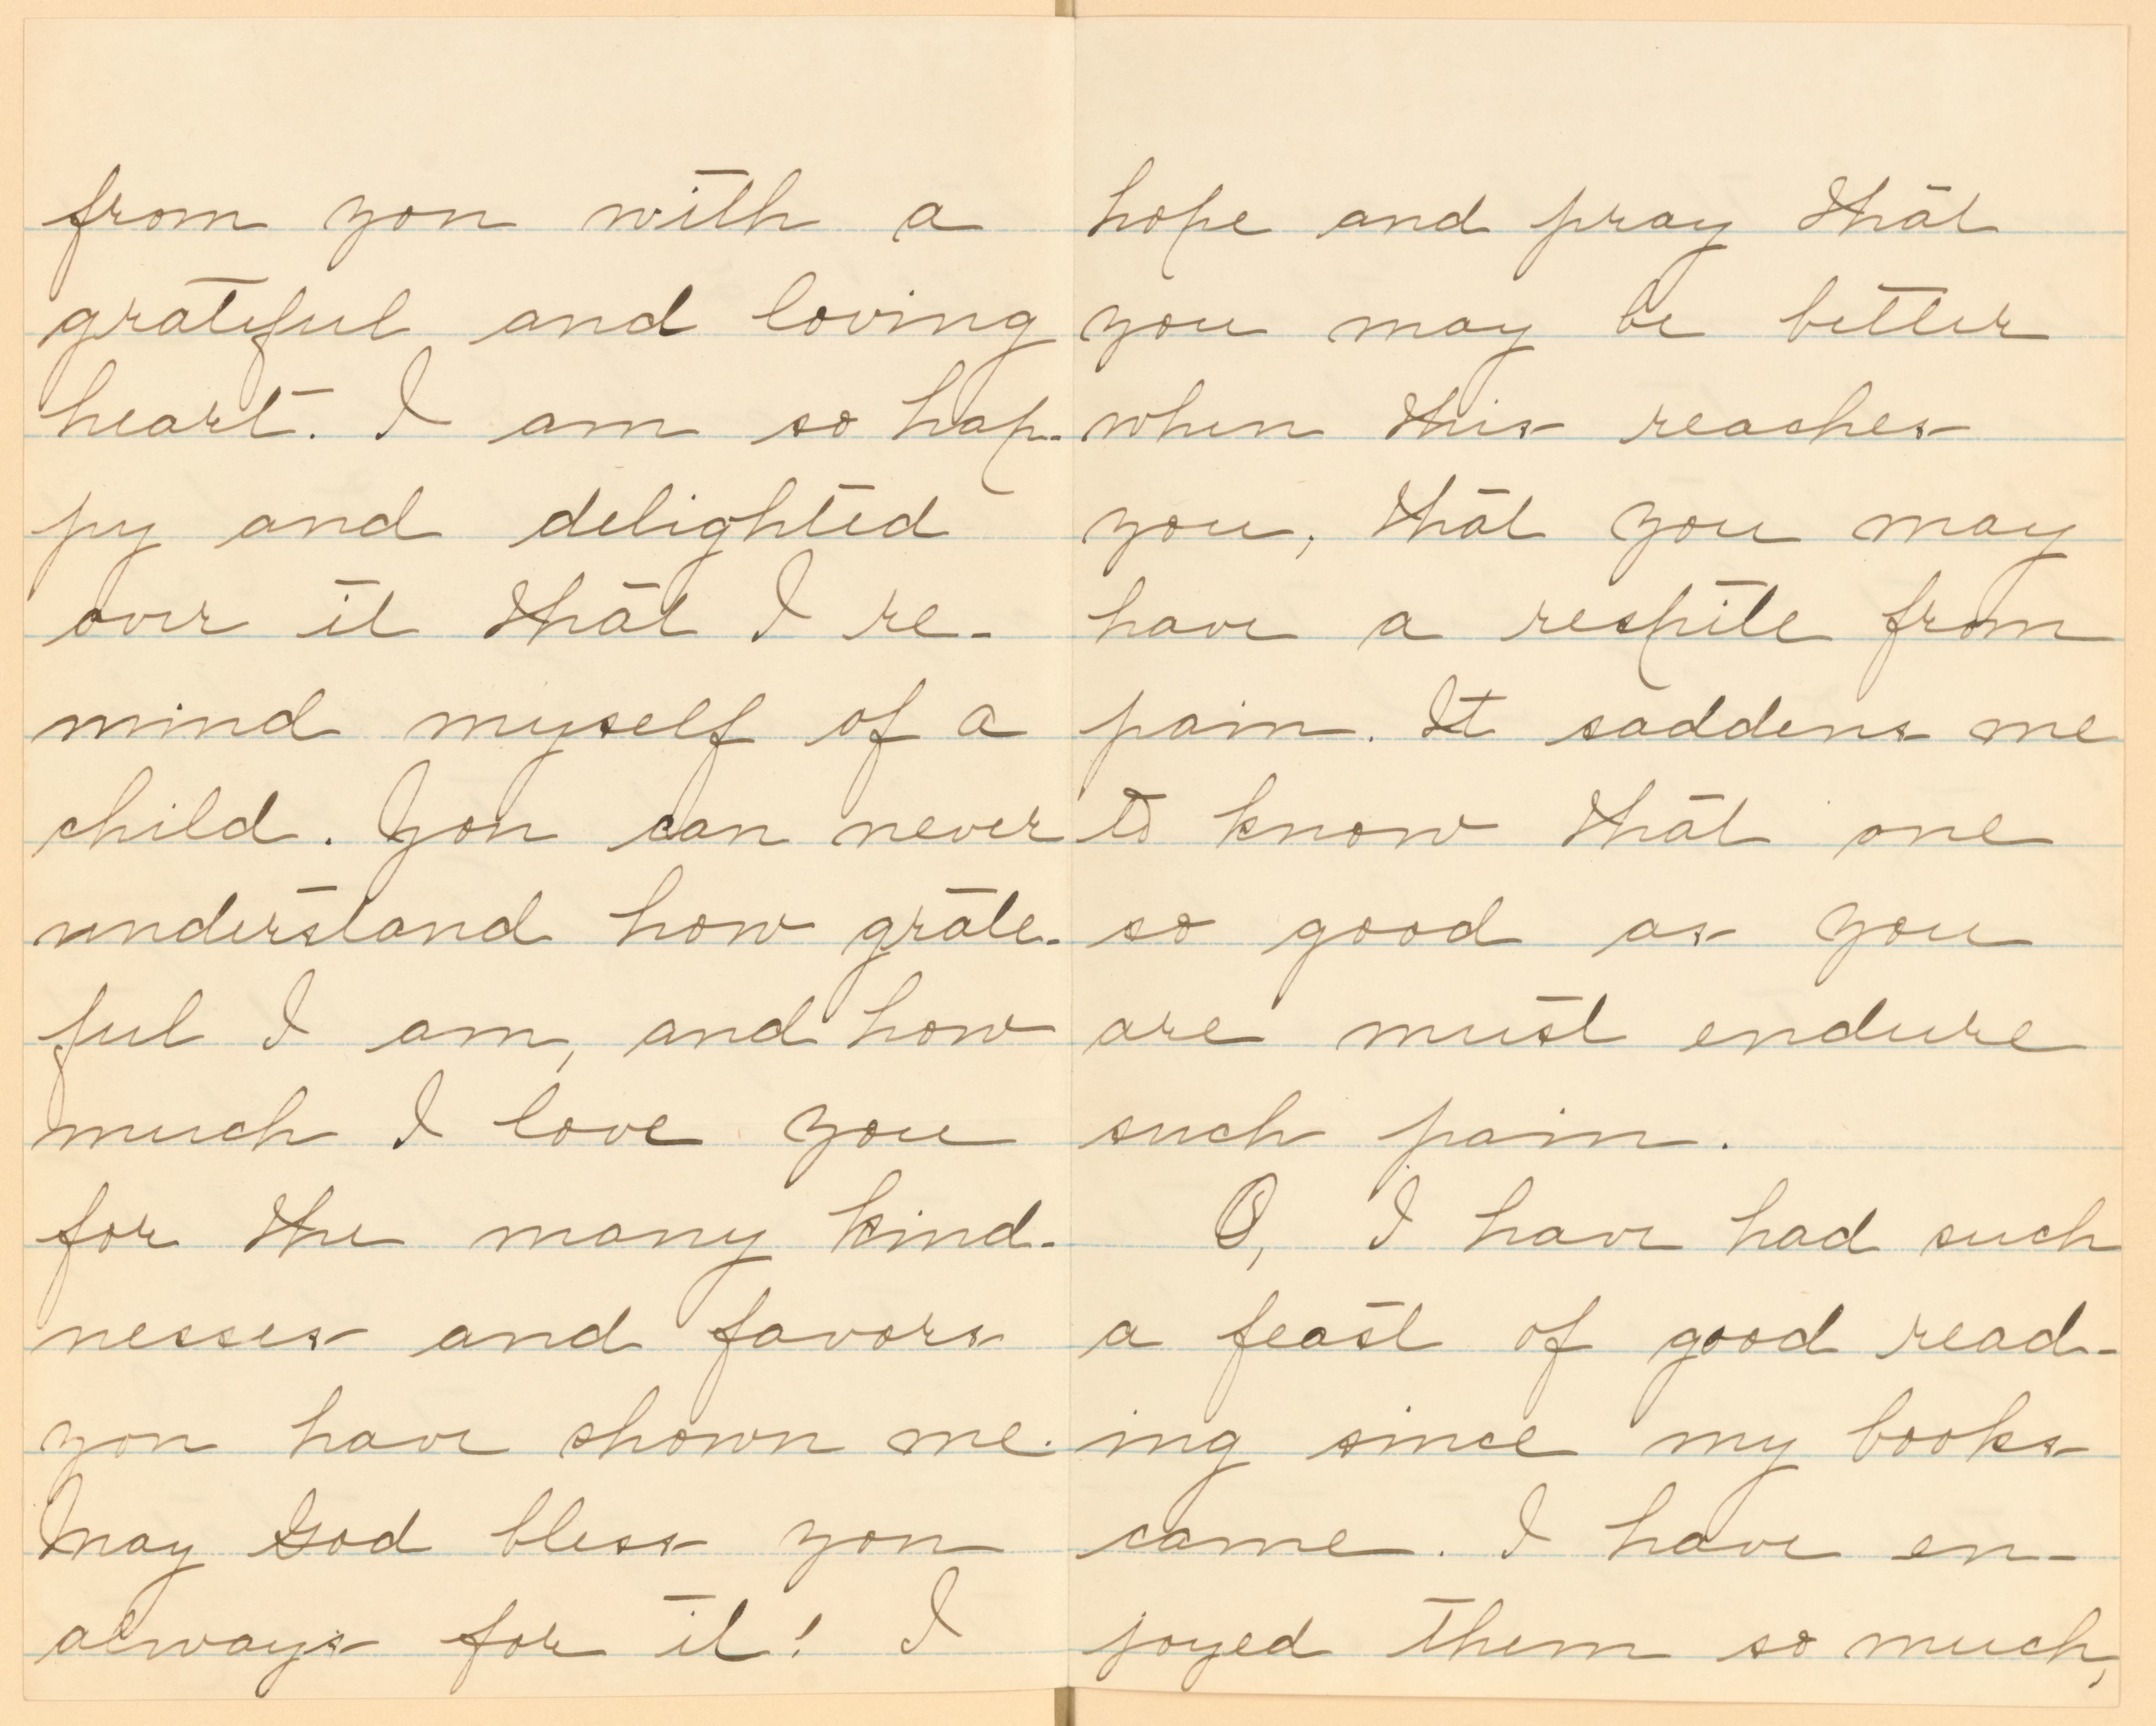 from you with a
grateful and loving
heart. I am so hap-
py and delighted
over it that I re-
mind myself of a
child. You can never
understand how grate-
ful I am, and how
much I love you
for the many kind-
nesses and favors
you have shown me.
May God bless you
always for it! I
hope and pray that
you may be better
when this reaches
you, that you may
have a respite from
pain. It saddens me
to know that one
so good as you
are must endure
such pain.
O, I have had such
a feast of good read-
ing since my books
came. I have en-
joyed them so much,